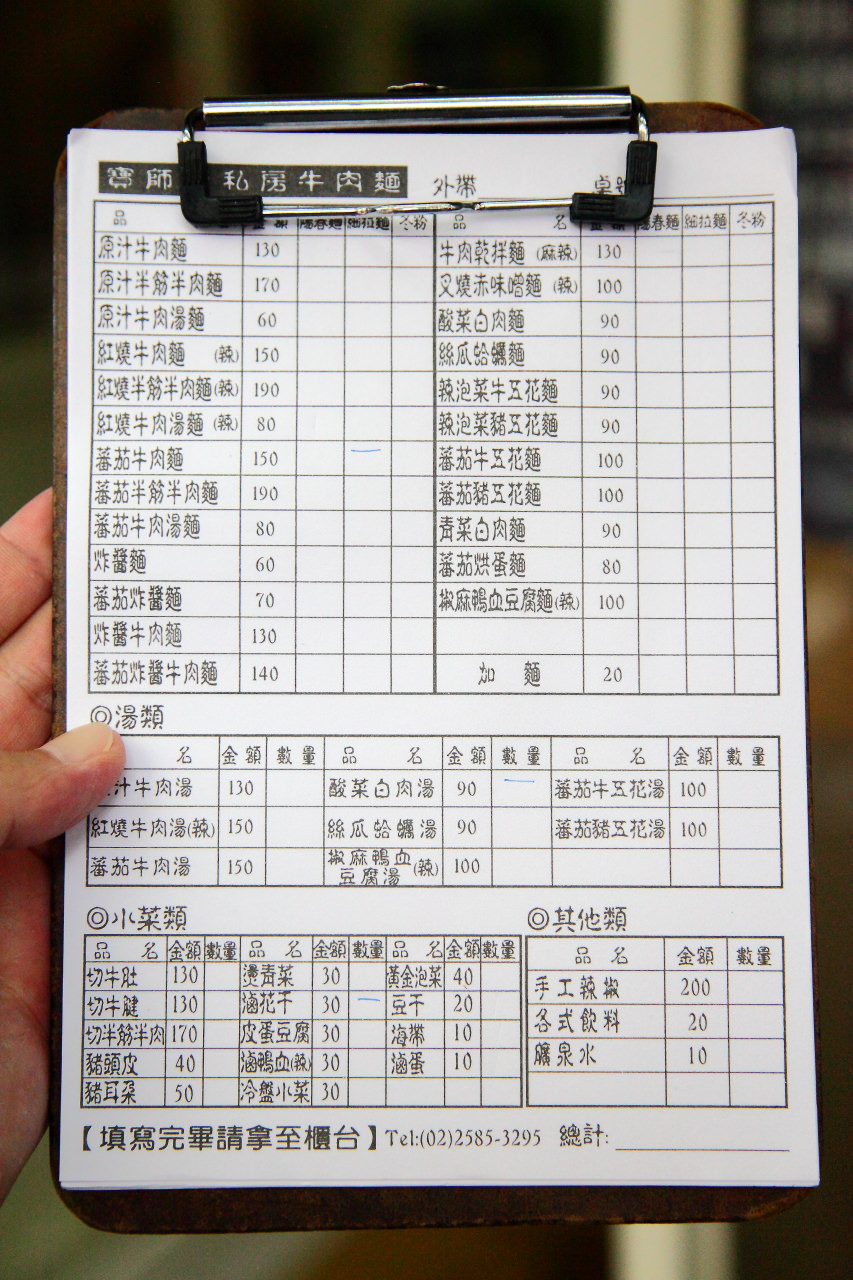 寶師 私房牛肉麵 外帶
品 額 陽春麵 細拉麵 冬粉 品 名 金額 陽春麵 細拉麵 冬粉
原汁牛肉麵 130 牛肉乾拌麵 (麻辣) 130
原汁半筋半肉麵 170 叉燒赤味噌麵 (辣) 100
原汁牛肉湯麵 60 酸菜白肉麵 90
紅燒牛肉麵 (辣) 150 絲瓜蛤蠣麵 90
紅燒半筋半肉麵(辣) 190 辣泡菜牛五花麵 90
紅燒牛肉湯麵 (辣) 80 辣泡菜豬五花麵 90
蕃茄牛肉麵 150 一 蕃茄牛五花麵 100
蕃茄半筋半肉麵 190 蕃茄豬五花麵 100
蕃茄牛肉湯麵 80 青菜白肉麵 90
炸醬麵 60 蕃茄烘蛋麵 80
蕃茄炸醬麵 70 椒麻鴨血豆腐麵(辣) 100
炸醬牛肉麵 130
蕃茄炸醬牛肉麵 140 加 麵 20
◎湯類
名 金額 數量 品 名 金額 數量 品 名 金額 數量
汁牛肉湯 130 酸菜白肉湯 90 一 蕃茄牛五花湯 100
紅燒牛肉湯(辣) 150 絲瓜蛤蠣湯 90 蕃茄豬五花湯 100
蕃茄牛肉湯 150 椒麻鴨血豆腐湯(辣) 100
◎小菜類 ◎其他類
品 名 金額 數量 品 名 金額 數量 品 名 金額 數量 品 名 金額 數量
切牛肚 130 燙青菜 30 黃金泡菜 40 手工辣椒 200
切牛腱 130 滷花干 30 一 豆干 20 各式飲料 20
切半筋半肉 170 皮蛋豆腐 30 海帶 10 礦泉水 10
豬頭皮 40 滷鴨血(辣) 30 滷蛋 10
豬耳朵 50 冷盤小菜 30
【填寫完畢請拿至櫃台】Tel:(02)2585-3295 總計: